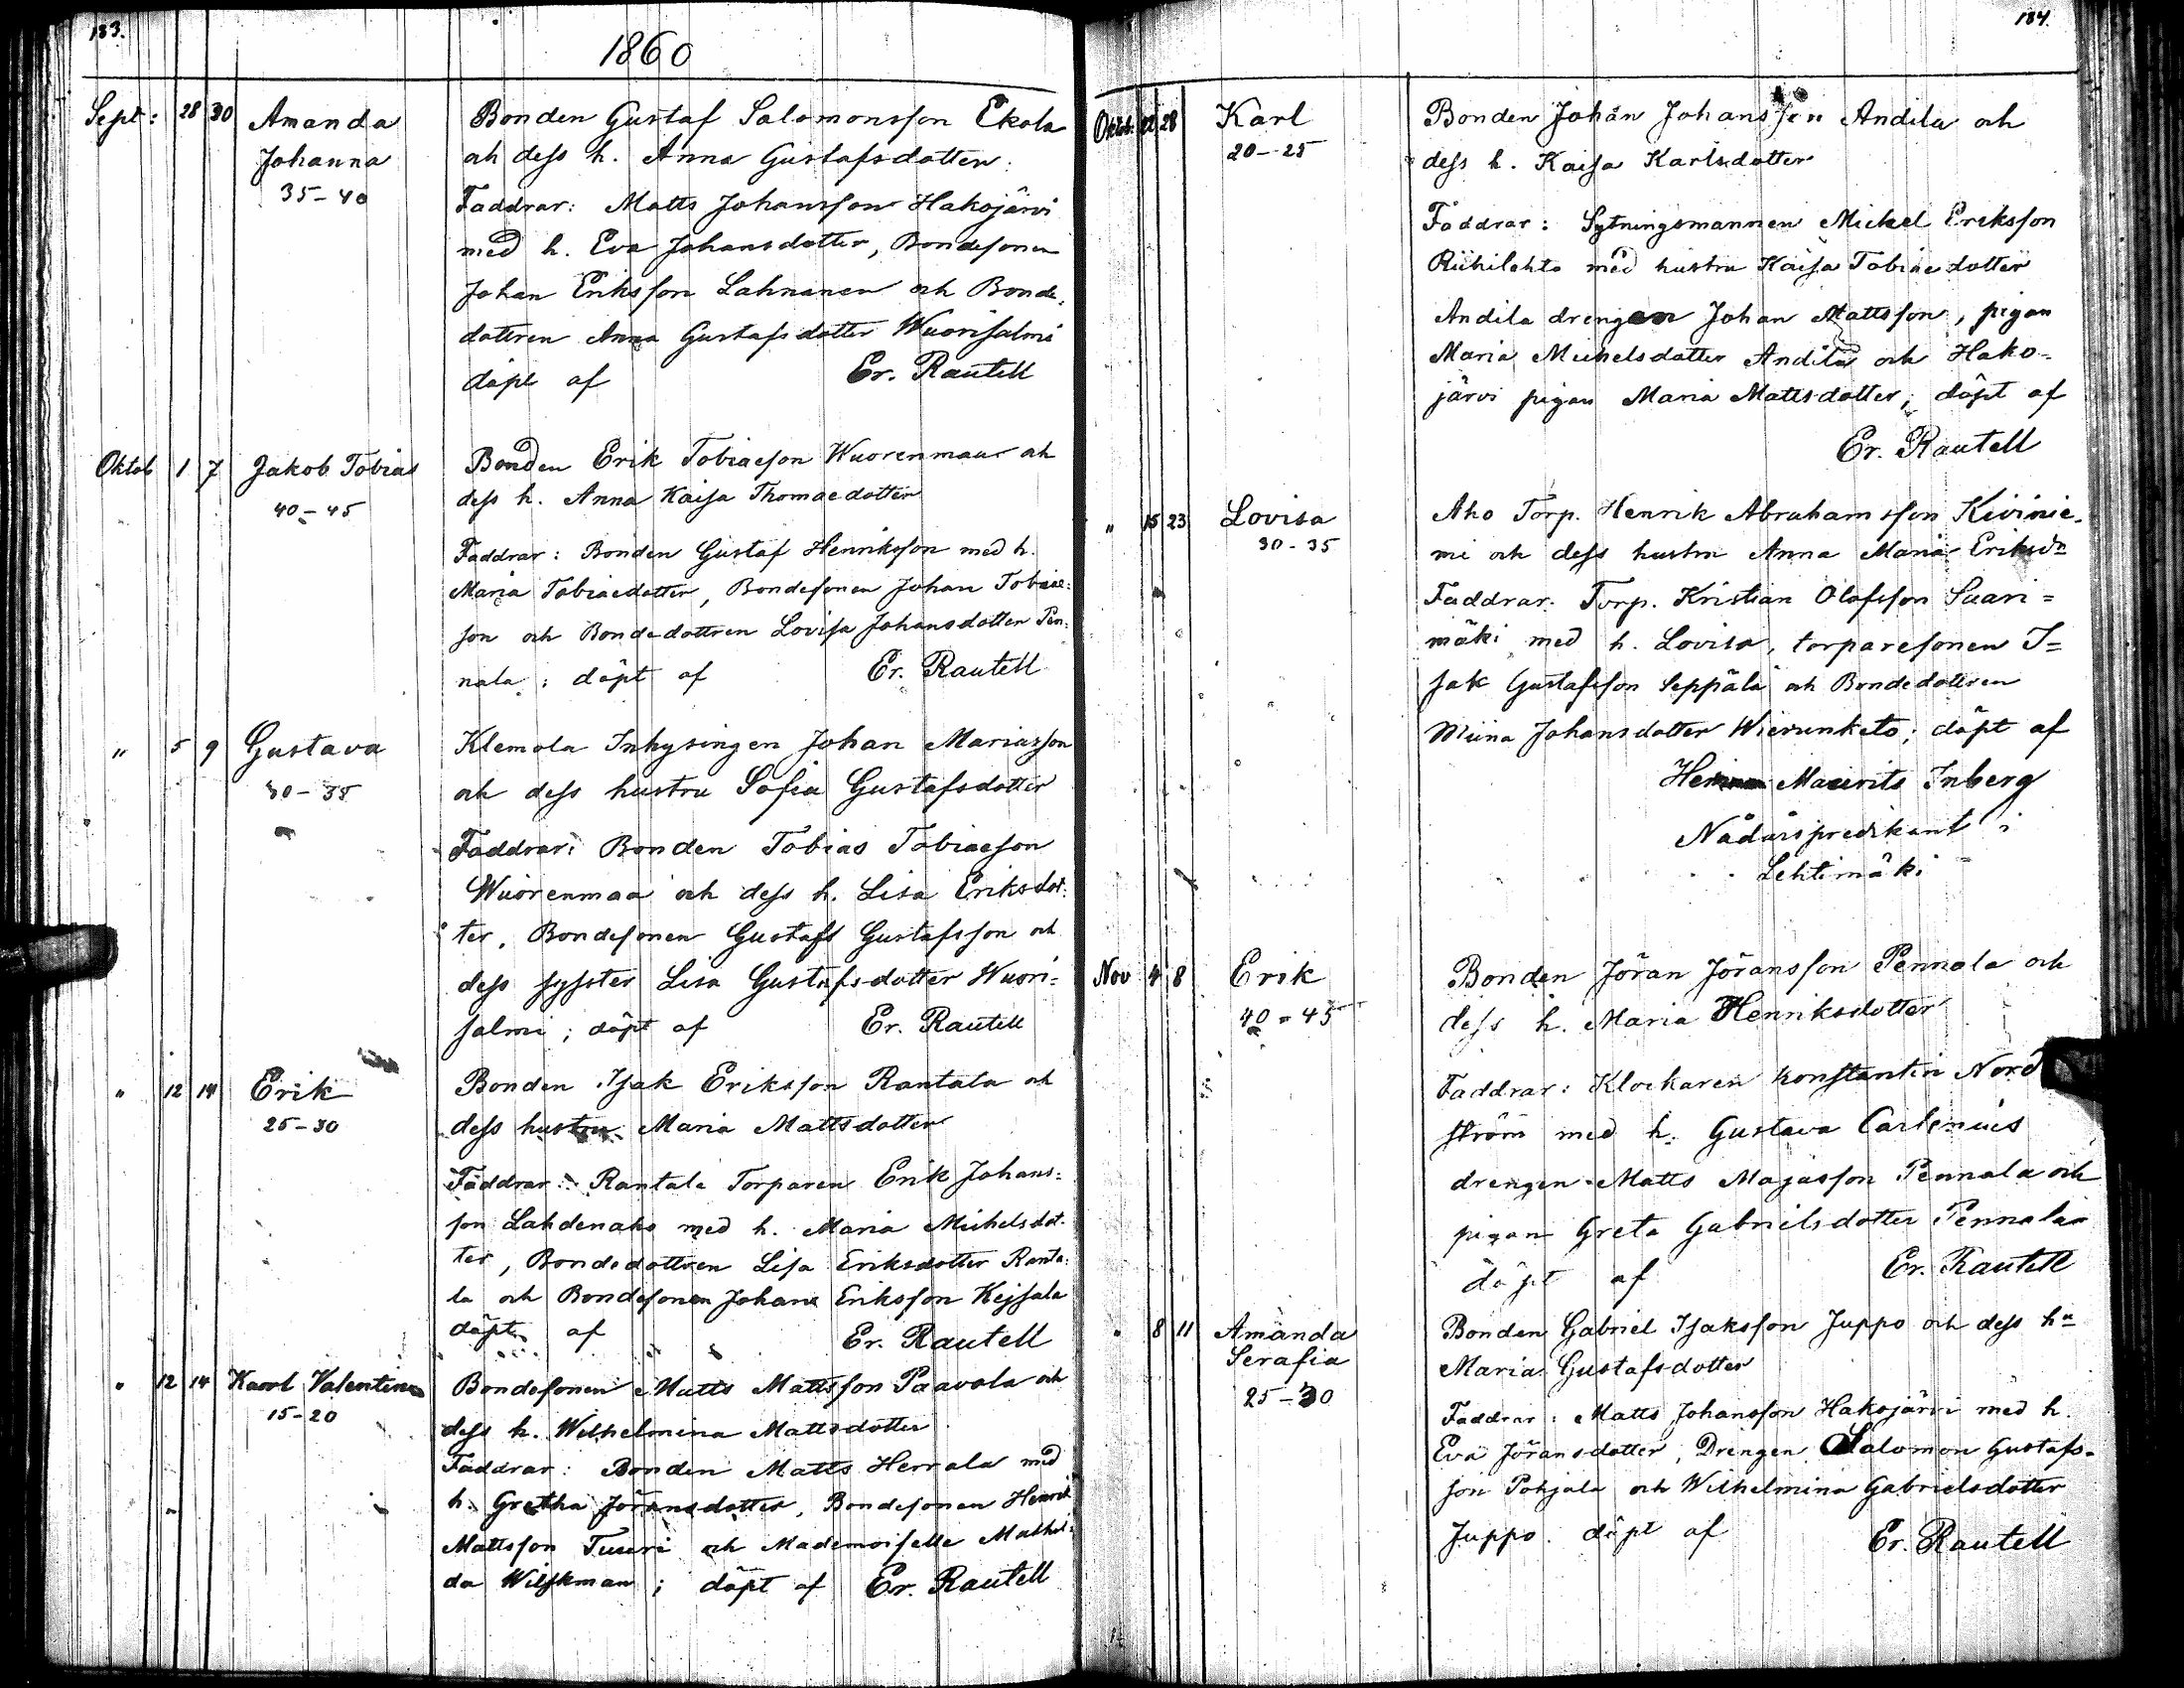 183.
1860
Sept: 28 30 Amanda Bonden Gustaf Salomonsson Ekola
Johanna och dess h. Anna Gustafsdotter.
35-40 Faddrar: Matts Johansson Hakojärvi
med h. Eva Johansdotter, Bondesonen
Johan Eriksson Lahnanen och Bonde-
dottren Anna Gustafsdotter Wuorisalmi
döpt af Er. Rautell
Oktob 1 7 Jakob Tobias Bonden Erik Tobiaeson Wuorenmaa och
40-45 dess h. Anna Kaisa Thomaedotter
Faddrar: Bonden Gustaf Henriksson med h.
Maria Tobiaedotter, Bondesonen Johan Tobiae-
son och Bondedottren Lovisa Johansdotter Pen-
nala; döpt af Er. Rautell
" 5 9 Gustava Klemola Inhysingen Johan Mariasson
30-35 och dess hustru Sofia Gustafsdotter
Faddrar: Bonden Tobias Tobiaeson
Wuorenmaa och dess h. Lisa Eriksdot-
ter, Bondesonen Gustaf Gustafsson och
dess syster Lisa Gustafsdotter Wuori-
salmi; döpt af Er. Rautell
" 12 14 Erik Bonden Isak Eriksson Rantala och
25-30 dess hustru Maria Mattsdotter
Faddrar: Rantala Torparen Erik Johans-
son Lahdenaho med h. Maria Michelsdot-
ter, Bondedottren Lisa Eriksdotter Ranta-
la och Bondesonen Johan Eriksson Keisala
döpt af Er. Rautell
" 12 14 Karl Valentin Bondesonen Matts Mattsson Paavola och
15-20 dess h. Wilhelmina Mattsdotter
Faddrar: Bonden Matts Herrala med
h. Gretha Jöransdotter, Bondesonen Henrik
Mattsson Tuuri och Mademoiselle Mathil-
da Wilskman; döpt af Er. Rautell
184.
Oktob. 22 28 Karl Bonden Johan Johansson Andila och
20-25 dess h. Kaisa Karlsdotter
Faddrar: Sytningsmannen Mickel Eriksson
Riihilahto med hustru Kaisa Tobiaedotter
Andila drengen Johan Mattsson, pigan
Maria Michelsdotter Andila och Hako-
järvi pigan Maria Mattsdotter; döpt af
Er. Rautell
" 15 23 Lovisa Aho Torp. Henrik Abrahamsson Kivinie-
30-35 mi och dess hustru Anna Maria Eriksdr
Faddrar: Torp. Kristian Olofsson Saari-
mäki med h. Lovisa, torparesonen I-
sak Gustafsson Seppälä och Bondedottren
Miina Johansdotter Wierunketo; döpt af
Maurits Inberg
Nådårspredikant i
Lehtimäki
Nov 4 8 Erik Bonden Jöran Jöransson Pennala och
40-45 dess h. Maria Henriksdotter
Faddrar: Klockaren Konstantin Nord
ström med h. Gustava Carlenius
drengen Matts Majasson Pennala och
pigan Greta Gabrielsdotter Pennala
döpt af Er. Rautell
" 8 11 Amanda Bonden Gabriel Isaksson Juppo och dess hu
Serafia Maria Gustafsdotter
25-30 Faddrar: Matts Johansson Hakojärvi med h.
Eva Jöransdotter, Drengen Salomon Gustafs-
son Pohjala och Wilhelmina Gabrielsdotter
Juppo. döpt af Er. Rautell